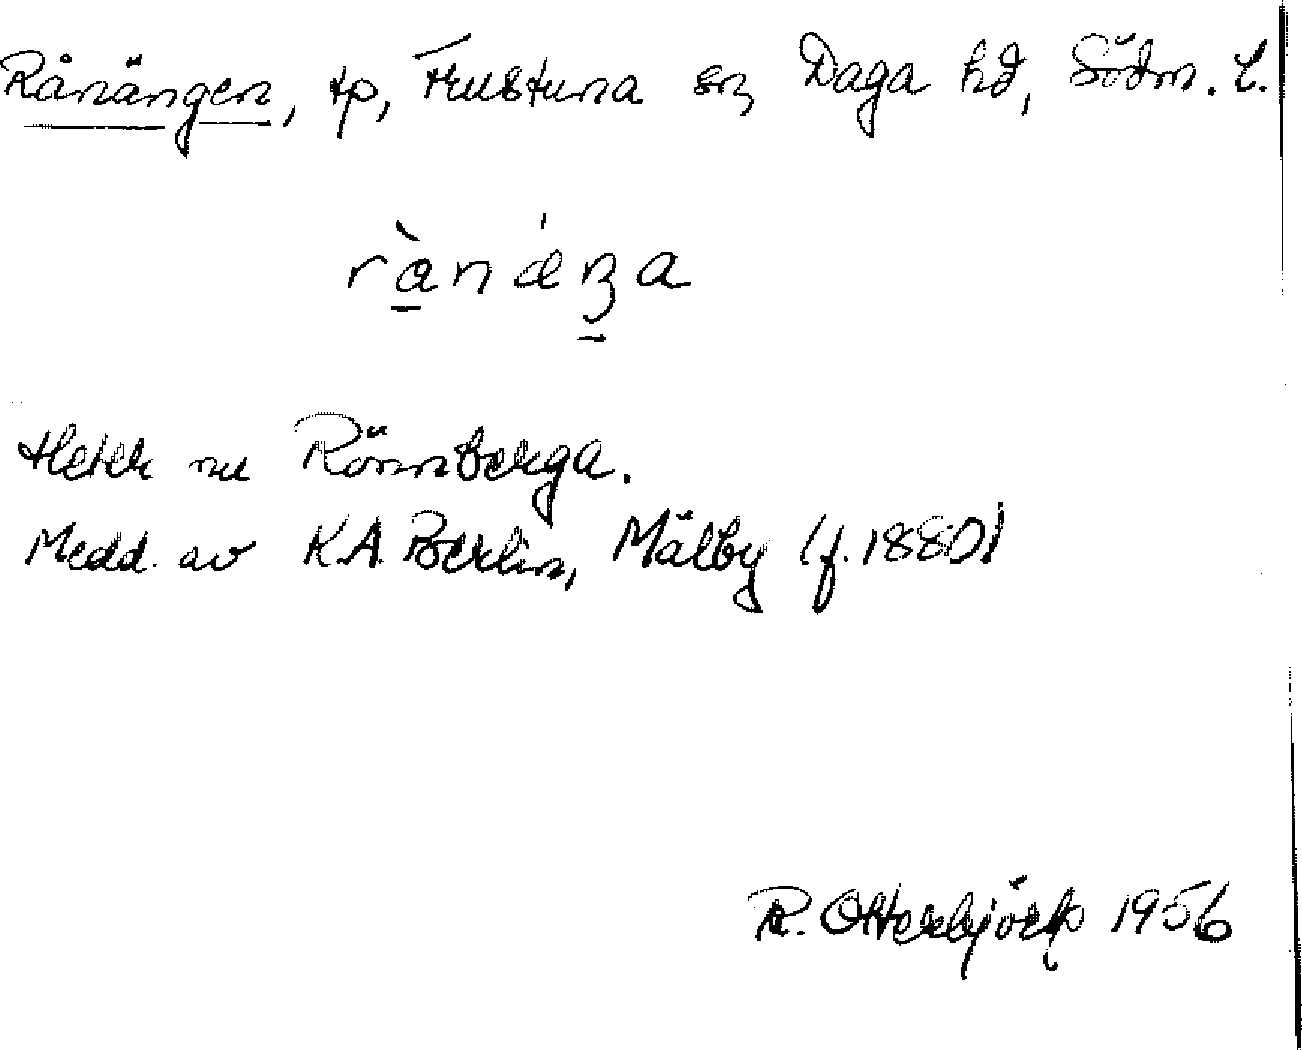 Rånängen, tp, Frustuna sn, Daga hd, Södm. l.
Heter nu Rönnberga.
Medd. av K.A. Berlin, Mälby (f. 1880)
R. Otterbjörk 1956